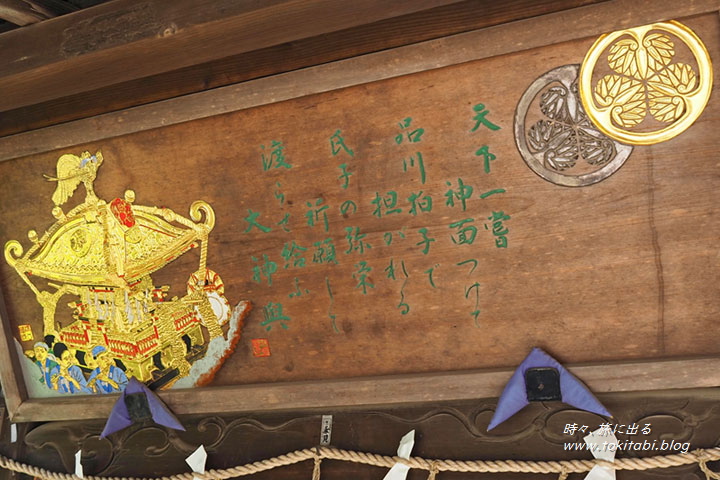 天下一嘗
神面つけて
品川拍子で
担がれる
氏子の弥栄
祈願して
渡らせ給ふ
大神輿
時々、旅に出る
www.tokitabi.blog